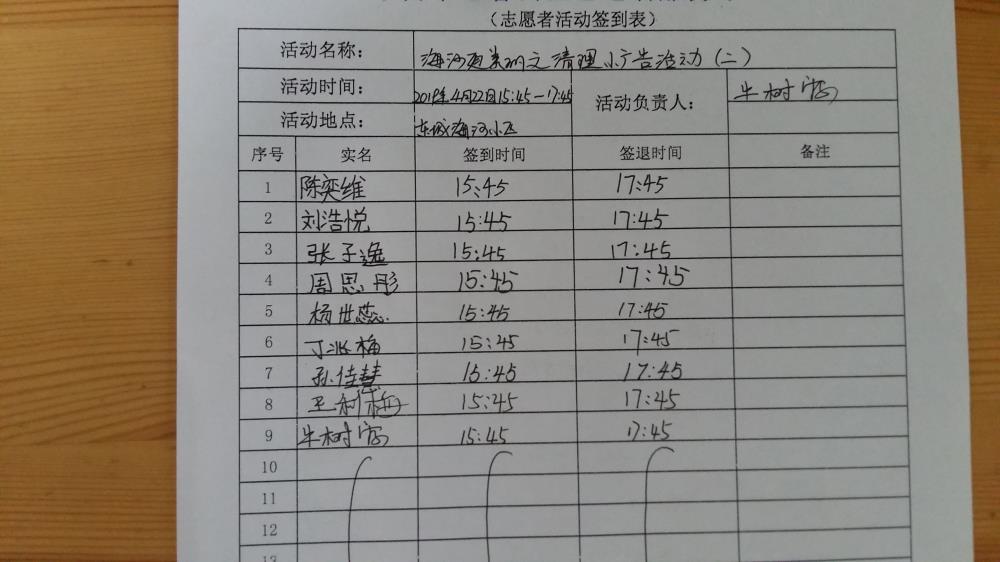 （志愿者活动签到表）
活动名称： 海河 清理小广告活动（二）
活动时间： 2018年4月22日15:45—17:45 活动负责人： 牛树
活动地点： 东城海河小区
序号 实名 签到时间 签退时间 备注
1 陈奕维 15:45 17:45
2 刘浩悦 15:45 17:45
3 张子逸 15:45 17:45
4 周思彤 15:45 17:45
5 杨世蕊 15:45 17:45
6 丁兆梅 15:45 17:45
7 孙佳慧 15:45 17:45
8 王利梅 15:45 17:45
9 牛树 15:45 17:45
10
11
12
13